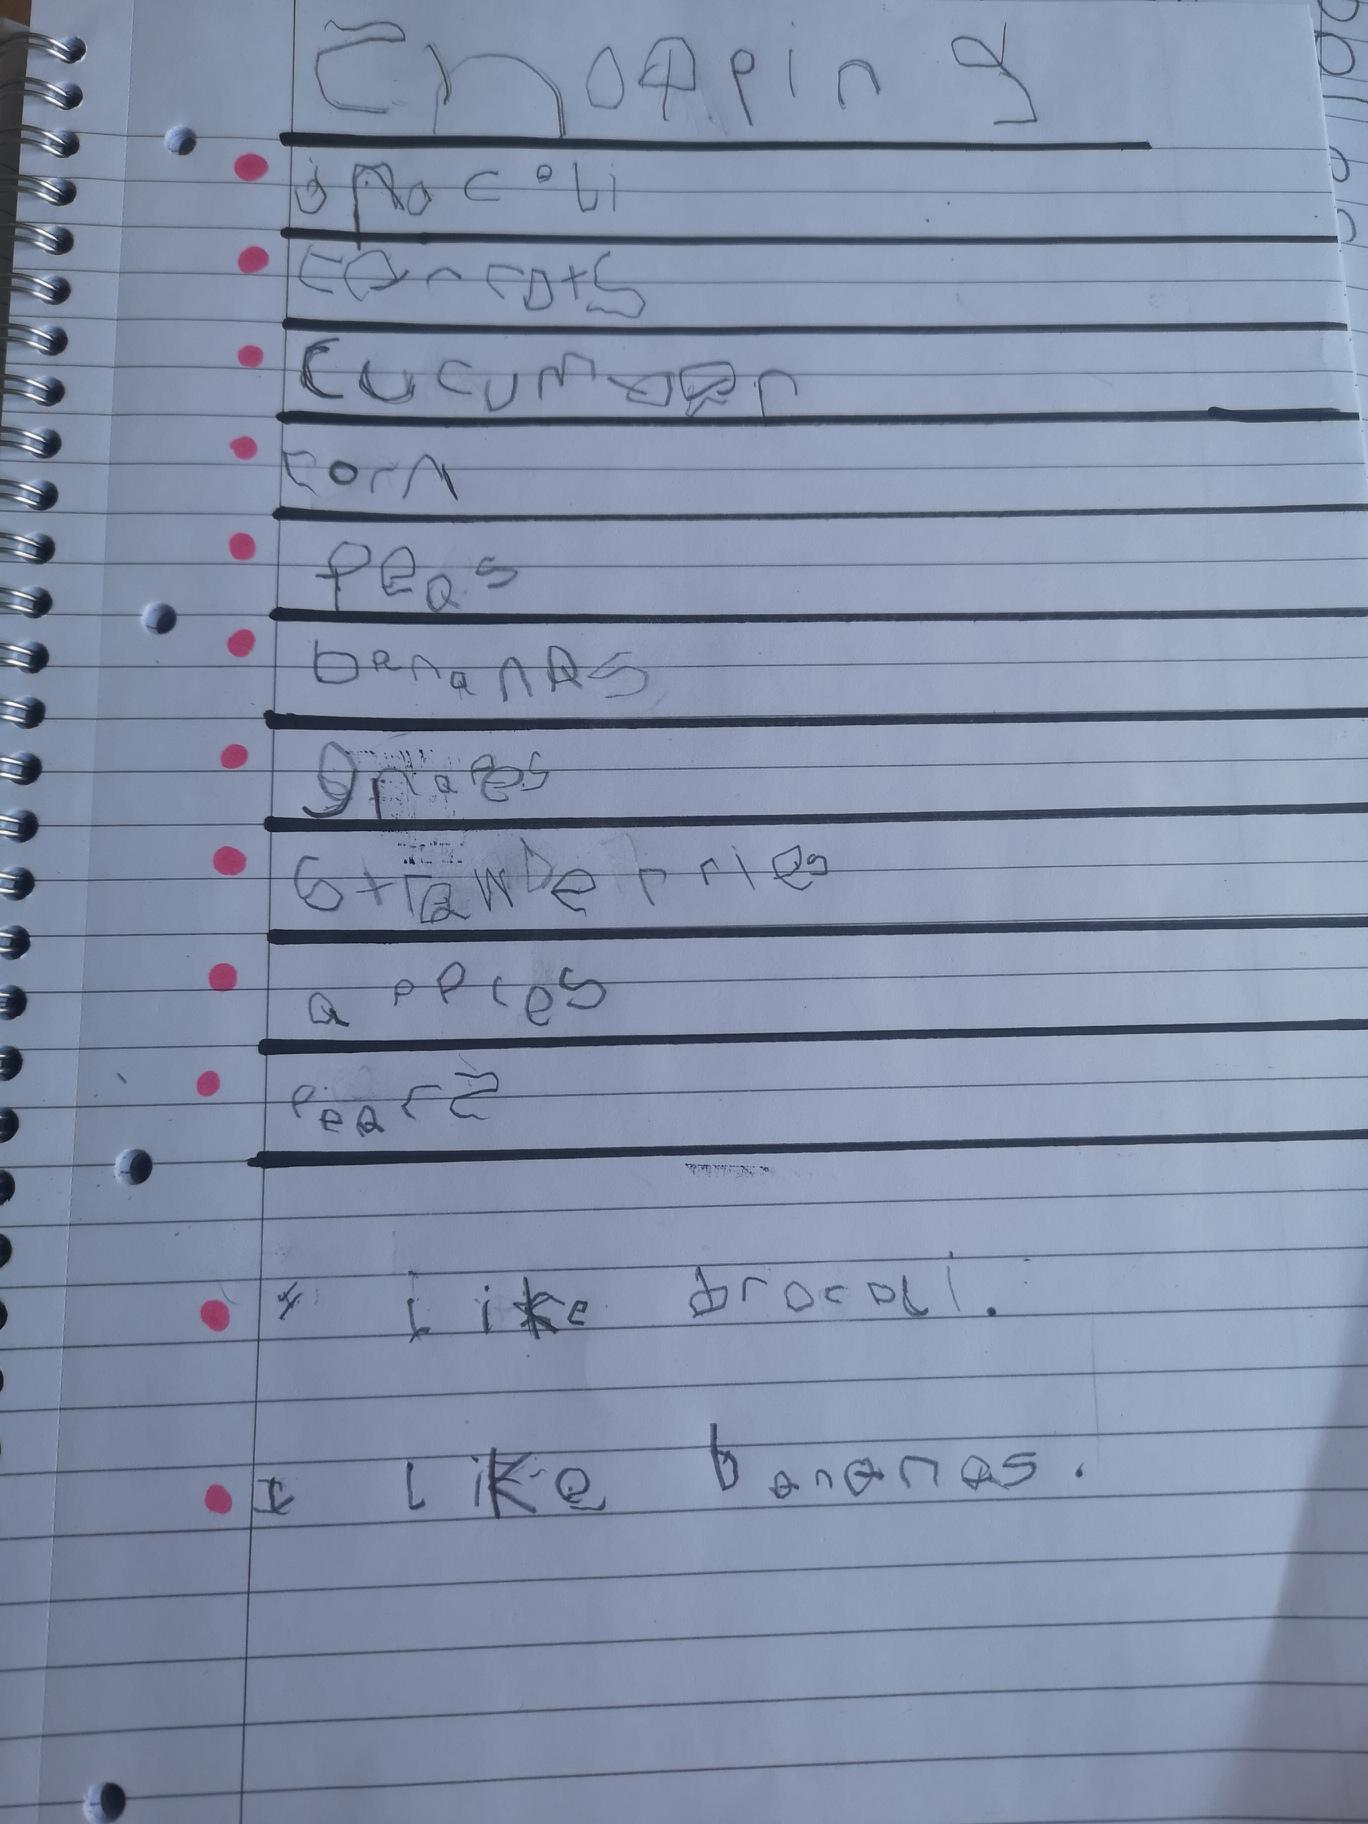 Shopping
brocoli
carrots
cucumber
corn
peas
bananas
grapes
strawberries
apples
pears
I like brocoli.
I like bananas.